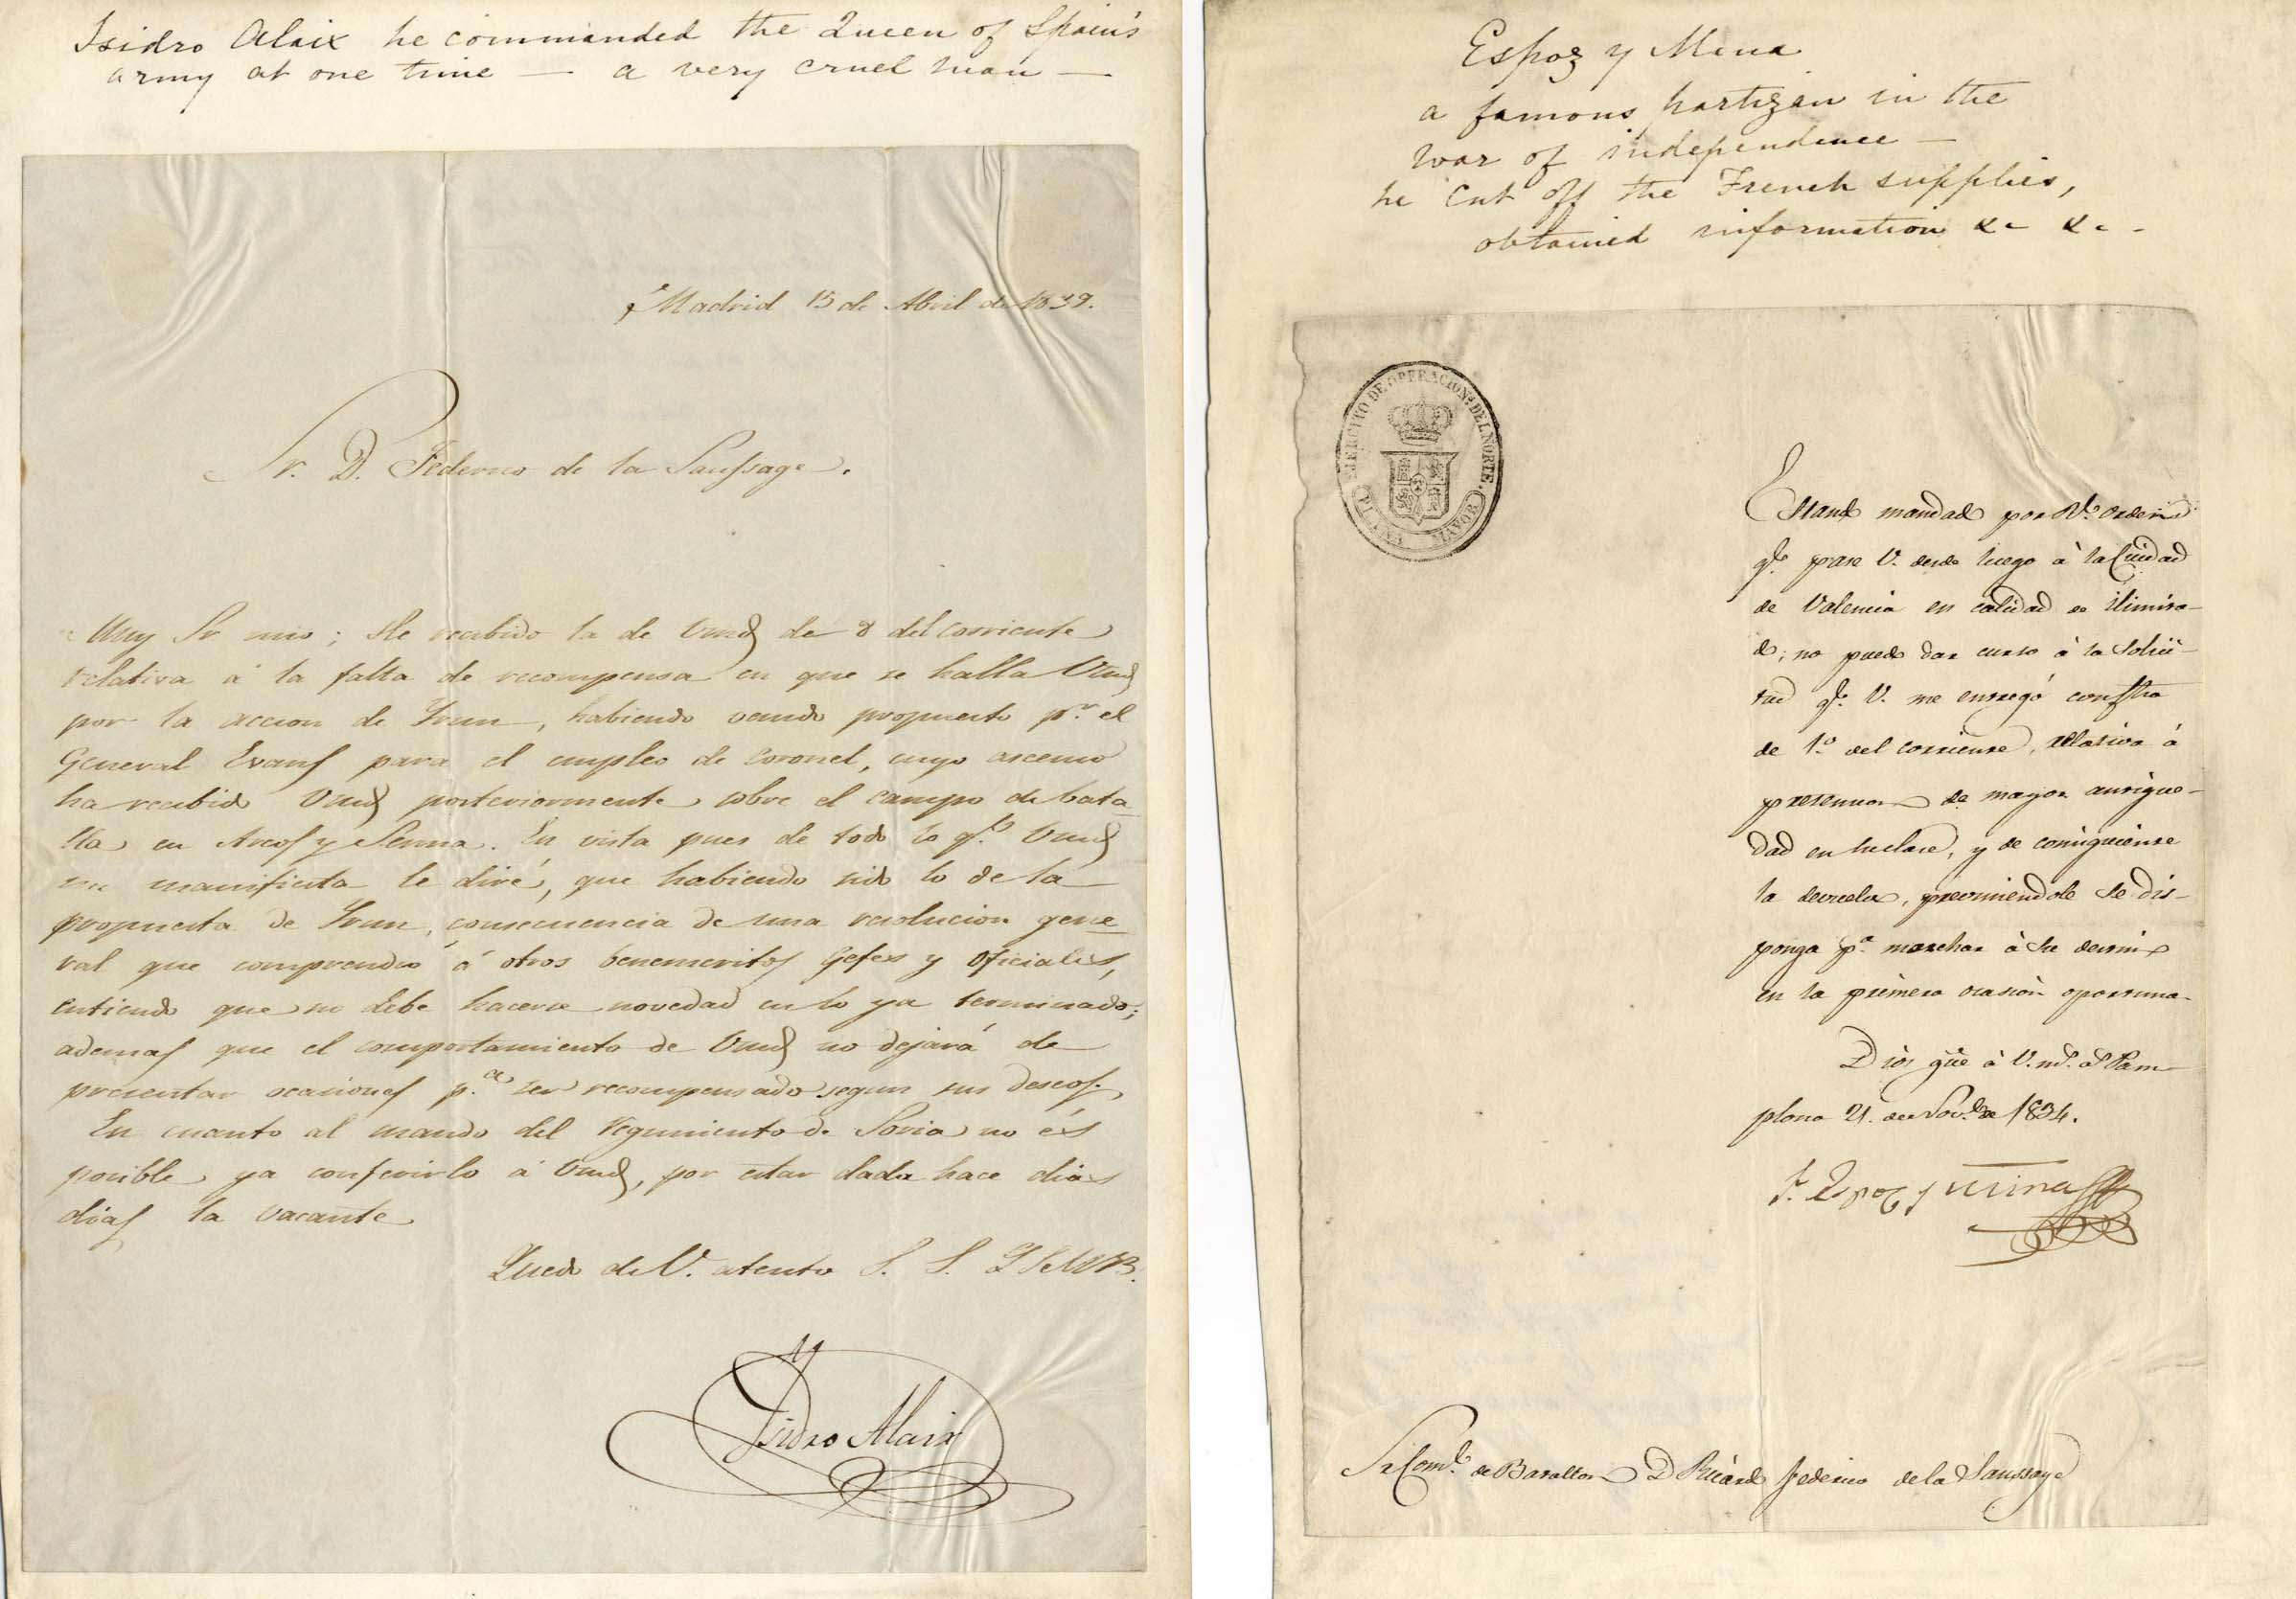 Isidro Alaix he commanded the Queen of Spain's
army at one time — a very cruel man —
Madrid 15 de Abril de 1839.
Sr. D. Federico de la Saussaye.
Muy Sr. mio; He recibido la de Vmd de 8 del corriente
relativa á la falta de recompensa en que se halla Vmd
por la accion de Irun, habiendo venido propuesto pr. el
General Evans para el empleo de Coronel, cuyo ascenso
ha recibido Vmd posteriormente sobre el campo de bata
lla en Arcos y Sesma. En vista pues de todo lo qe. Vmd
me manifiesta le diré, que habiendo sido lo de la
propuesta de Irun, consecuencia de una resolucion gene
ral que comprendió á otros benemeritos Gefes y oficiales,
entiendo que no debe hacerse novedad en lo ya terminado;
ademas que el comportamiento de Vmd no dejará de
presentar ocasiones p.a ser recompensado segun sus deseos.
En cuanto al mando del regimiento de Soria no és
posible ya conferirlo á Vmd, por estar dada hace dias
dias la vacante
Quedo de V. atento S. S. Q S M B.
Isidro Alaix
Espoz y Mina
a famous partizan in the
war of independence —
he cut off the French supplies,
obtained information &c &c -
EJERCITO DE OPERACION.S DEL NORTE.
PLANA MAYOR
Estando mandado por Rl. orden
qe. pase V. desde luego à la Ciudad
de Valencia en calidad de ilimita-
do; no puedo dar curso à la solici-
tud qe. V. me entregó con fha
de 1.o del corriente, relativa à
pretension de mayor antigue-
dad en su clase, y de consiguiente
la devuelvo, previniendole se dis-
ponga p.a marchar à su destino
en la primera ocasion oportuna.
Dios gue à V. m.s a.s Pam-
plona 21. de Nov.e de 1834.
F. Espoz y Mina
Sr. Com.te de Batallon D Ricardo Federico de la Saussaye